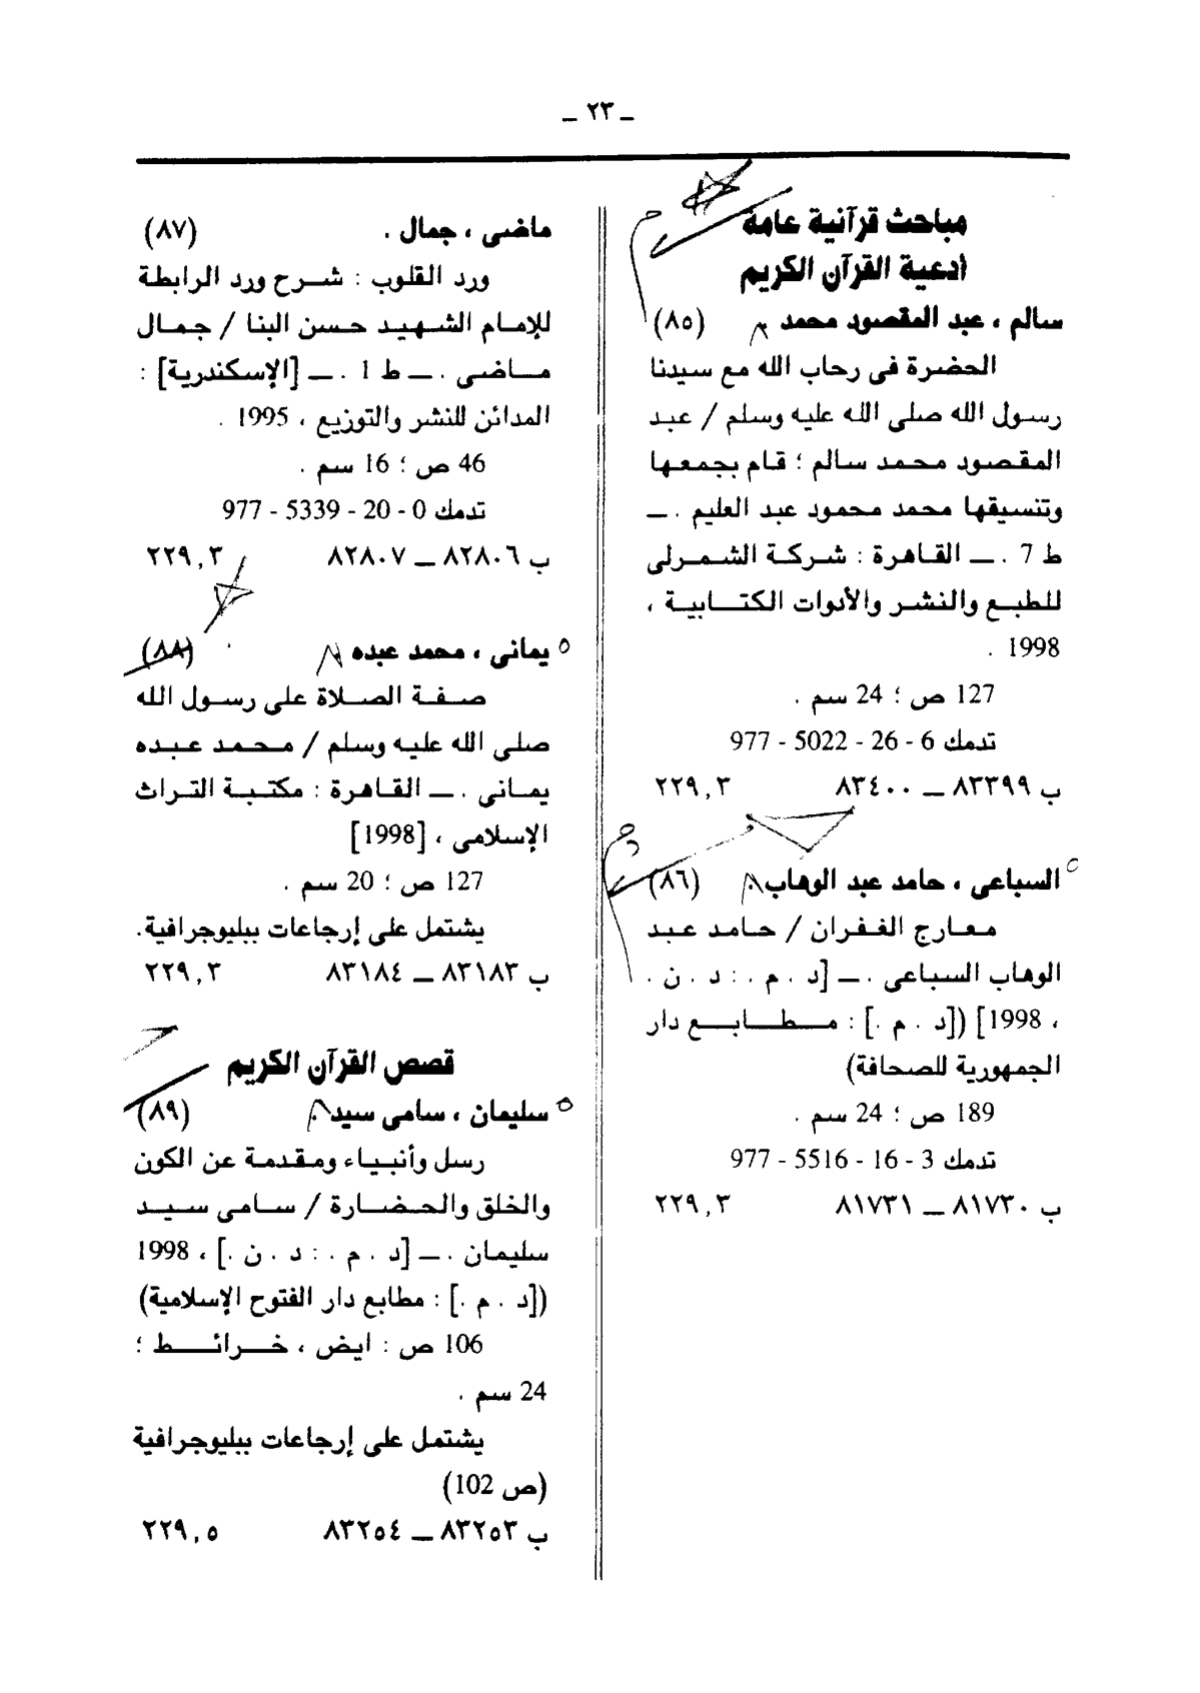 ـ ٢٣ ـ
مباحث قرآنية عامة
أدعية القرآن الكريم
سالم ، عبد المقصود محمد (٨٥)
الحضرة فى رحاب الله مع سيدنا
رسول الله صلى الله عليه وسلم / عبد
المقصود محمد سالم ؛ قام بجمعها
وتنسيقها محمد محمود عبد العليم . ــ
ط 7 . ــ القاهرة : شركة الشمرلى
للطبع والنشر والأدوات الكتابية ،
1998 .
127 ص ؛ 24 سم .
تدمك 6 - 26 - 5022 - 977
ب ٨٣٣٩٩ ــ ٨٣٤٠٠ ٢٢٩,٣
السباعى ، حامد عبد الوهاب (٨٦)
معارج الغفران / حامد عبد
الوهاب السباعى . ــ [د . م . : د . ن .
، 1998] ([د . م .] : مطابع دار
الجمهورية للصحافة)
189 ص ؛ 24 سم .
تدمك 3 - 16 - 5516 - 977
ب ٨١٧٣٠ ــ ٨١٧٣١ ٢٢٩,٣
ماضى ، جمال . (٨٧)
ورد القلوب : شرح ورد الرابطة
للإمام الشهيد حسن البنا / جمال
ماضى . ــ ط 1 . ــ [الإسكندرية] :
المدائن للنشر والتوزيع ، 1995 .
46 ص ؛ 16 سم .
تدمك 0 - 20 - 5339 - 977
ب ٨٢٨٠٦ ــ ٨٢٨٠٧ ٢٢٩,٣
يمانى ، محمد عبده (٨٨)
صفة الصلاة على رسول الله
صلى الله عليه وسلم / محمد عبده
يمانى . ــ القاهرة : مكتبة التراث
الإسلامى ، [1998]
127 ص ؛ 20 سم .
يشتمل على إرجاعات ببليوجرافية.
ب ٨٣١٨٣ ــ ٨٣١٨٤ ٢٢٩,٣
قصص القرآن الكريم
سليمان ، سامى سيد (٨٩)
رسل وأنبياء ومقدمة عن الكون
والخلق والحضارة / سامى سيد
سليمان . ــ [د . م . : د . ن .] ، 1998
([د . م .] : مطابع دار الفتوح الإسلامية)
106 ص : ايض ، خرائط ؛
24 سم .
يشتمل على إرجاعات ببليوجرافية
(ص 102)
ب ٨٣٢٥٣ ــ ٨٣٢٥٤ ٢٢٩,٥